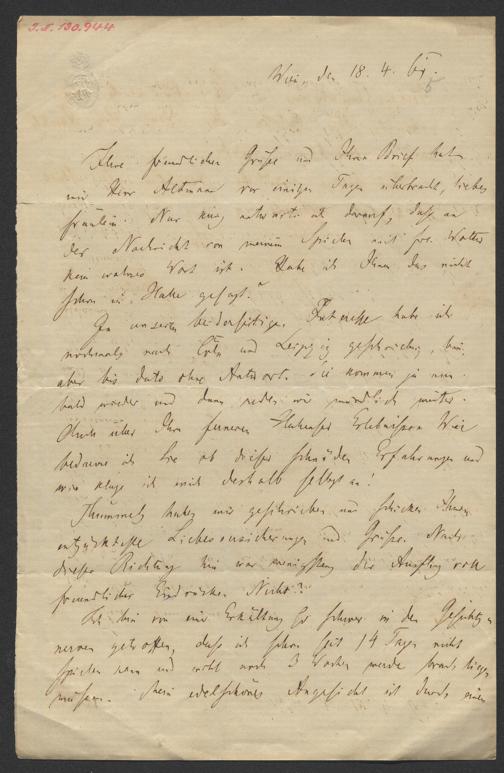 I.N. 130.944
Wien, den 18. 4. 65.
Ihre freundlichen Grüße und Ihren Brief hat
mir Herr Altmann vor einigen Tagen überbracht, liebes
Fräulein. Nur kurz antworte ich darauf, daß an
der Nachricht von meinem Spielen mit Frl.
kein wahres Wort ist. Habe ich Ihnen das nicht
schon in Halle gesagt?
In unserem beiderseitigen Interesse habe ich
nochmals nach Cöln und Leipzig geschrieben, bin
aber bis dato ohne Antwort. Sie kommen ja nun
bald wieder und dann reden wir mündlich weiter.
Auch über Ihre ferneren Erlebnisse
bedaure ich Sie ob dieser schnöden Erfahrungen und
wie klage ich mich deshalb selbst an!
haben mir geschrieben und schicken Ihnen
entzückteste Liebesversicherungen und Grüße. Nach
dieser Richtung hin war wenigstens der Ausflug voll
freundlicher Eindrücke. Nicht?
Ich bin von einer Erkältung so schwer in den Gesichts-
nerven getroffen, daß ich schon seit 14 Tagen nicht
spielen kann und wohl noch 3 Wochen werde brach liegen
müssen. Mein edelschönes Angesicht ist durch einen